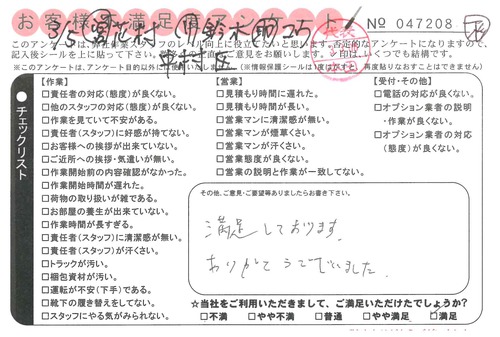 お客様満足度アンケート
№ 047208
このアンケートは、弊社作業スタッフのレベル向上に役立てたいと思います。否定的なアンケートになりますので、
記入後シールを上に貼って下さい。
※印は、いくつでも結構です。
(※このアンケートは、アンケート目的以外には
(※情報保護シールは1度はがすと、再度貼りなおすことはできません)
チェックリスト
【作業】
□責任者の対応(態度)が良くない。
□他のスタッフの対応(態度)が良くない。
□作業を見ていて不安がある。
□責任者(スタッフ)に好感が持てない。
□お客様への挨拶が出来ていない。
□ご近所への挨拶・気遣いが無い。
□作業開始前の内容確認がなかった。
□作業開始時間が遅れた。
□荷物の取り扱いが雑である。
□お部屋の養生が出来ていない。
□作業時間が長すぎる。
□責任者(スタッフ)に清潔感が無い。
□責任者(スタッフ)が汗くさい。
□トラックが汚い。
□梱包資材が汚い。
□運転が不安(下手)である。
□靴下の履き替えをしてない。
□スタッフにやる気がみられない。
【営業】
□見積もり時間に遅れた。
□見積もり時間が長い。
□営業マンに清潔感が無い。
□営業マンが煙草くさい。
□営業マンが汗くさい。
□営業態度が良くない。
□営業の説明と作業が一致してない。
【受付・その他】
□電話の対応が良くない。
□オプション業者の説明
・作業が良くない。
□オプション業者の対応
(態度)が良くない。
その他、ご意見・ご要望等ありましたらお書き下さい。
満足しております。
ありがとうございました。
☆当社をご利用いただきまして、ご満足いただけたでしょうか?
□不満 □やや不満 □普通 □やや満足 □満足